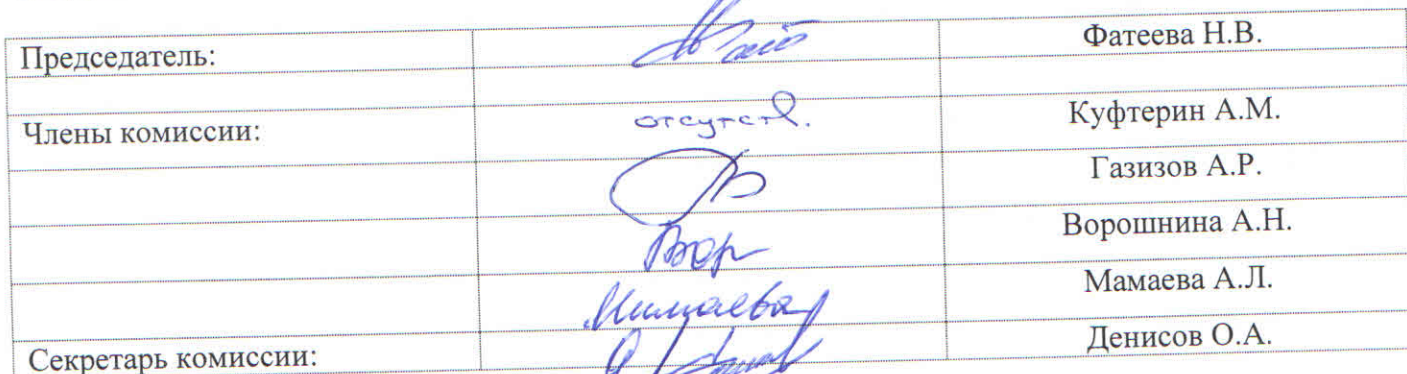 Председатель: Фатеева Н.В.
Члены комиссии: отсутств. Куфтерин А.М.
Газизов А.Р.
Ворошнина А.Н.
Мамаева А.Л.
Секретарь комиссии: Денисов О.А.